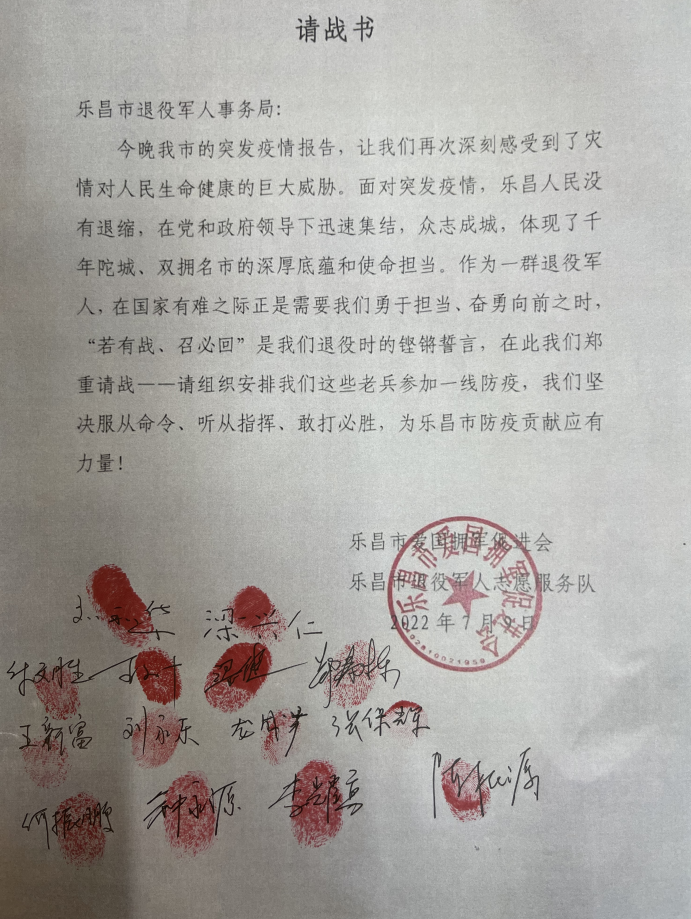 请战书
乐昌市退役军人事务局:
今晚我市的突发疫情报告，让我们再次深刻感受到了灾
情对人民生命健康的巨大威胁。面对突发疫情，乐昌人民没
有退缩，在党和政府领导下迅速集结，众志成城，体现了千
年陀城、双拥名市的深厚底蕴和使命担当。作为一群退役军
人，在国家有难之际正是需要我们勇于担当、奋勇向前之时，
“若有战、召必回”是我们退役时的铿锵誓言，在此我们郑
重请战——请组织安排我们这些老兵参加一线防疫，我们坚
决服从命令、听从指挥、敢打必胜，为乐昌市防疫贡献应有
力量！
乐昌市爱国拥军促进会
乐昌市退役军人志愿服务队
2022年7月9日
乐昌市爱国拥军促进会
王新富 刘永乐 张保辉
何振鹏 钟永源